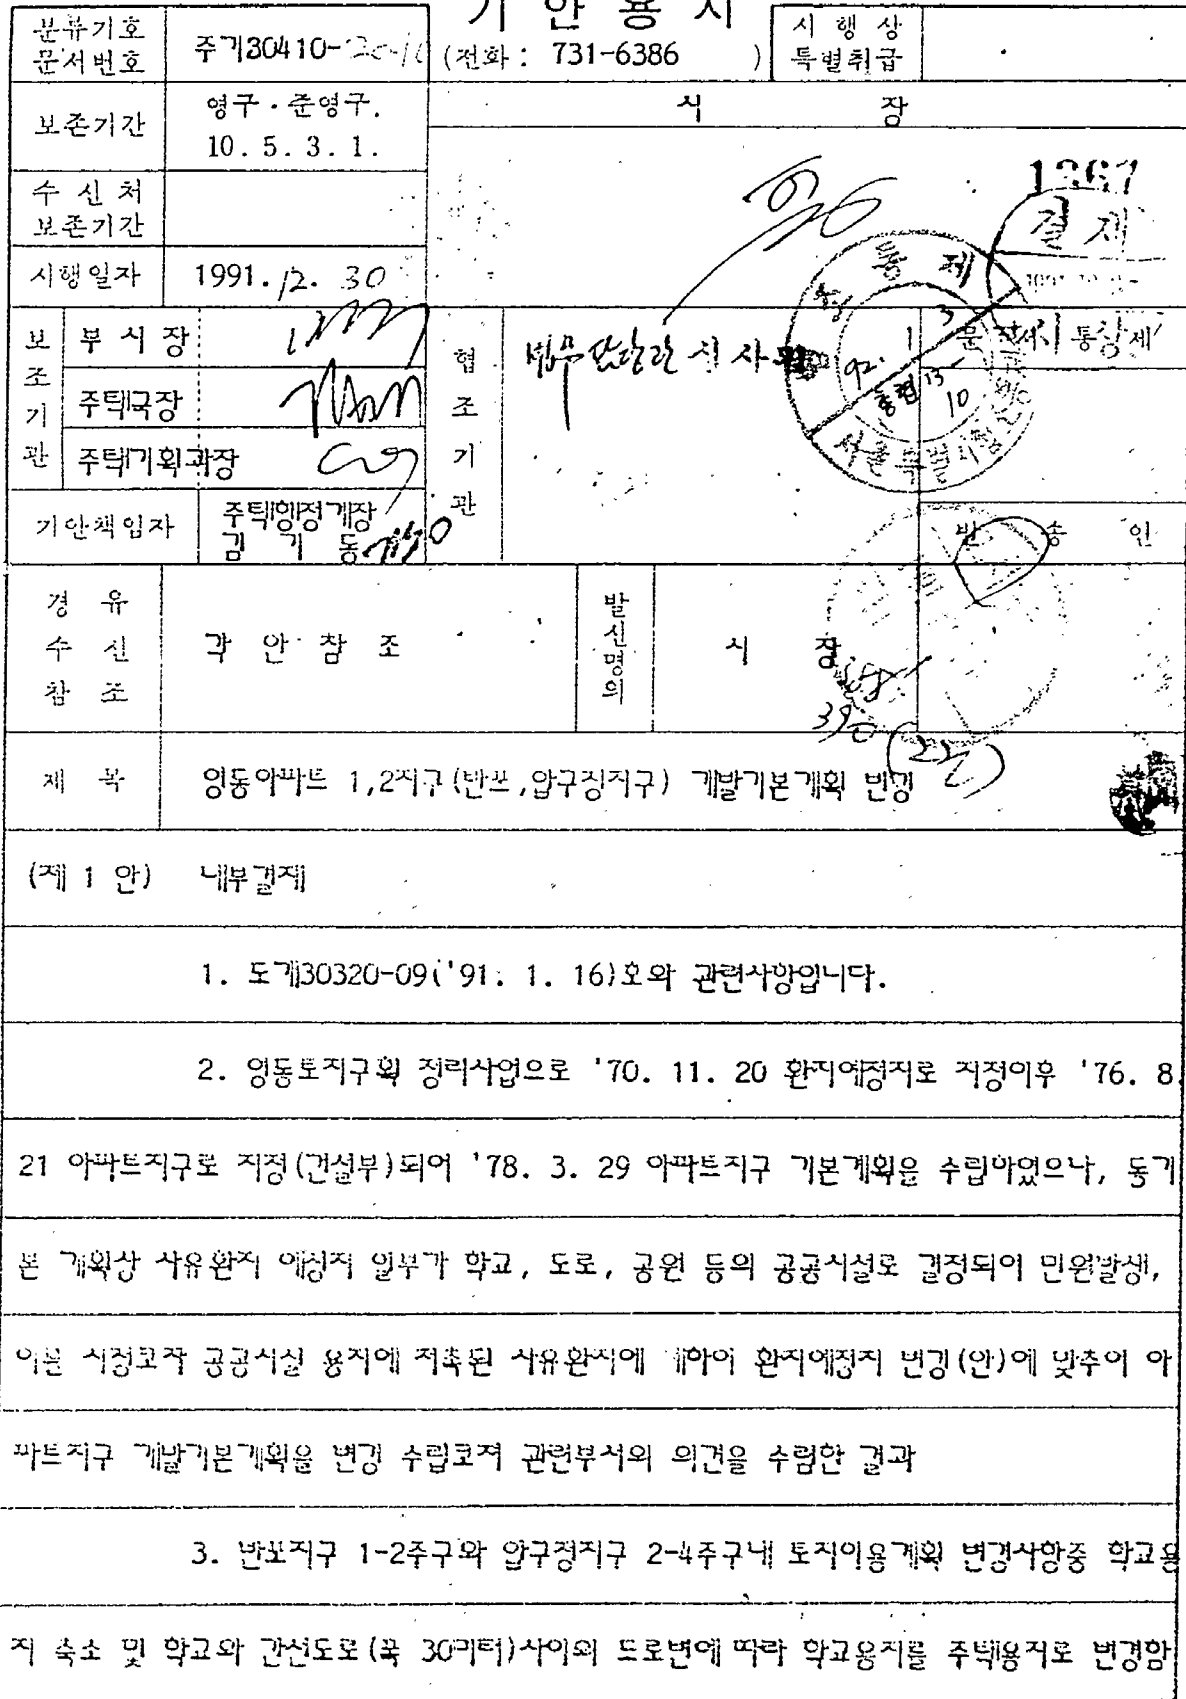 기 안 용 지
분류기호
문서번호
주기30410-
(전화 : 731-6386 )
시 행 상
특별취급
보존기간
영구 · 준영구.
10. 5. 3. 1.
시 장
수 신 처
보존기간
시행일자
1991. 12. 30
1267
결 재
보조기관
부 시 장
주택국장
주택기획과장
협조기관
법무담당관
문서통제
92.
서울특별시
기안책임자
주택행정계장
김 기 동
발 송 인
경 유
수 신
참 조
각 안 참 조
발신명의
시 장
390
제 목
영동아파트 1,2지구(반포,압구정지구) 개발기본계획 변경
(제 1 안) 내부결재
1. 도계30320-09('91. 1. 16)호와 관련사항입니다.
2. 영동토지구획 정리사업으로 '70. 11. 20 환지예정지로 지정이후 '76. 8.
21 아파트지구로 지정(건설부)되어 '78. 3. 29 아파트지구 기본계획을 수립하였으나, 동기
본 계획상 사유환지 예정지 일부가 학교, 도로, 공원 등의 공공시설로 결정되어 민원발생,
이를 시정코자 공공시설 용지에 저촉된 사유환지에 대하여 환지예정지 변경(안)에 맞추어 아
파트지구 개발기본계획을 변경 수립코져 관련부서의 의견을 수렴한 결과
3. 반포지구 1-2주구와 압구정지구 2-4주구내 토지이용계획 변경사항중 학교용
지 축소 및 학교와 간선도로(폭 30미터)사이의 도로변에 따라 학교용지를 주택용지로 변경함